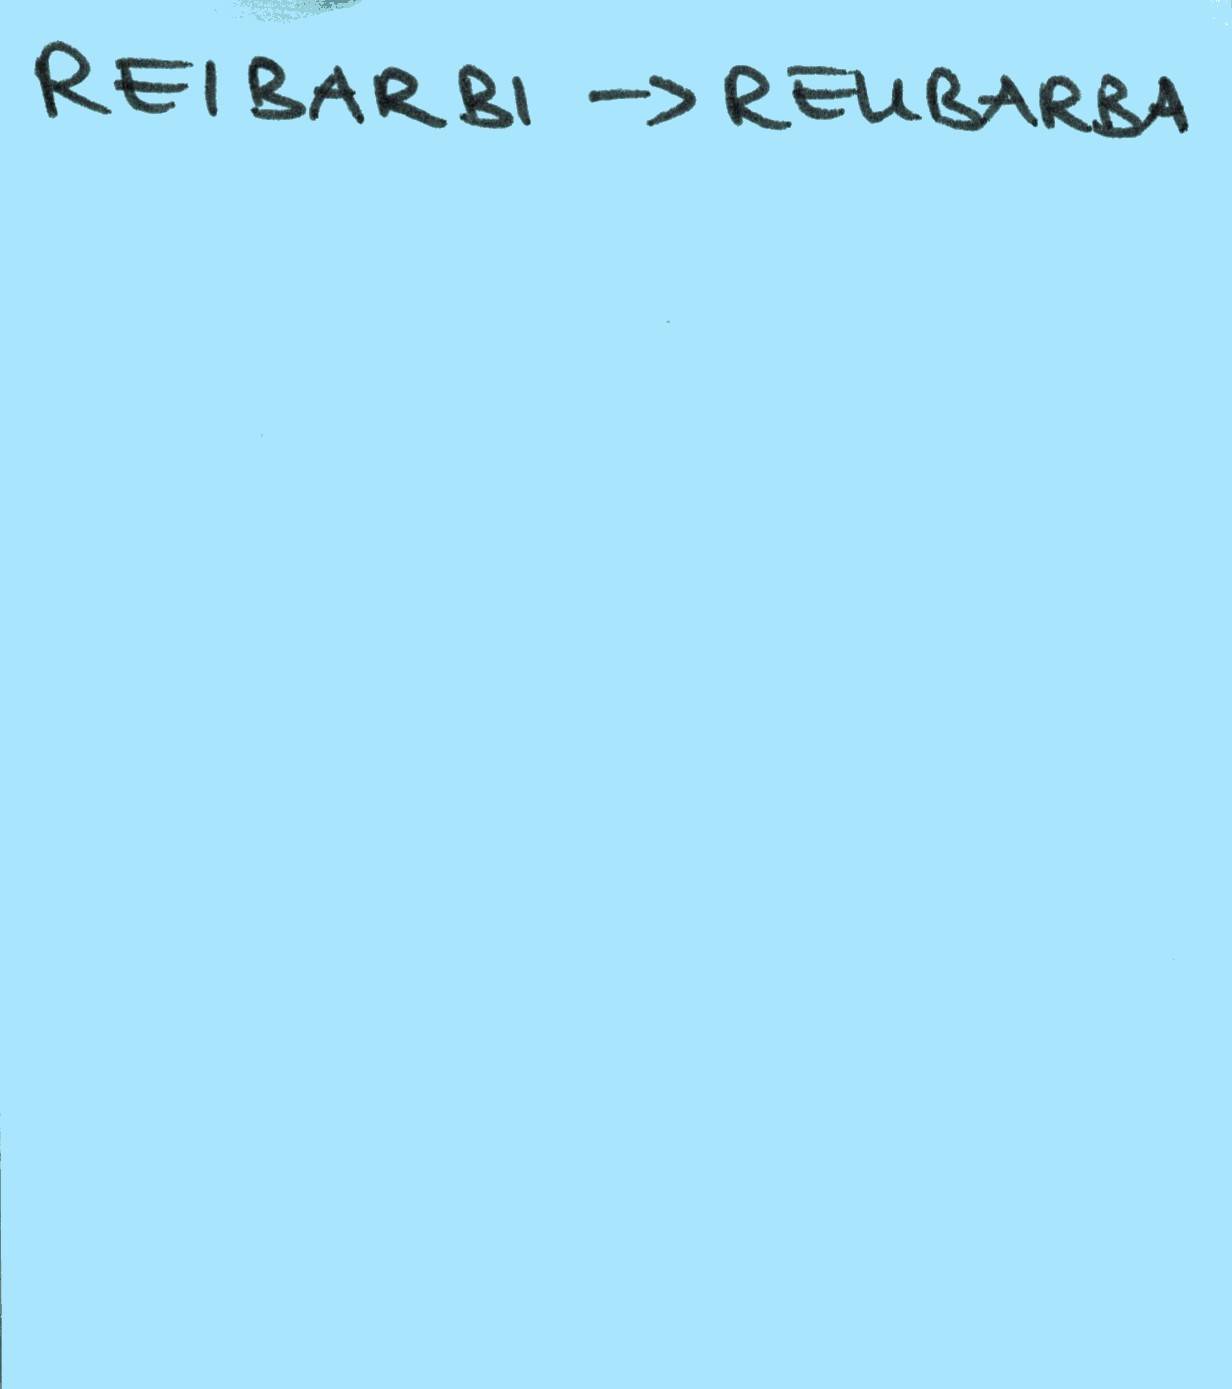 REIBARBI → REUBARBA